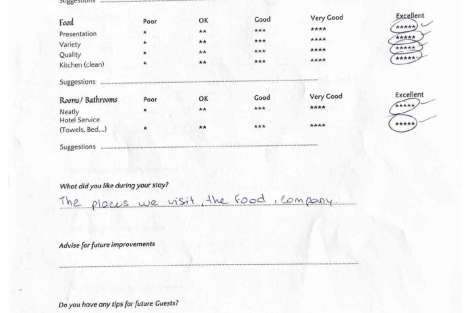 Suggestions
Food Poor OK Good Very Good Excellent
Presentation * ** *** **** *****
Variety * ** *** **** *****
Quality * ** *** **** *****
Kitchen (clean) * ** *** **** *****
Suggestions
Rooms/ Bathrooms Poor OK Good Very Good Excellent
Neatly * ** *** **** *****
Hotel Service
(Towels, Bed,..) * ** *** **** *****
Suggestions
What did you like during your stay?
The places we visit, the food, company
Advise for future improvements
Do you have any tips for future Guests?